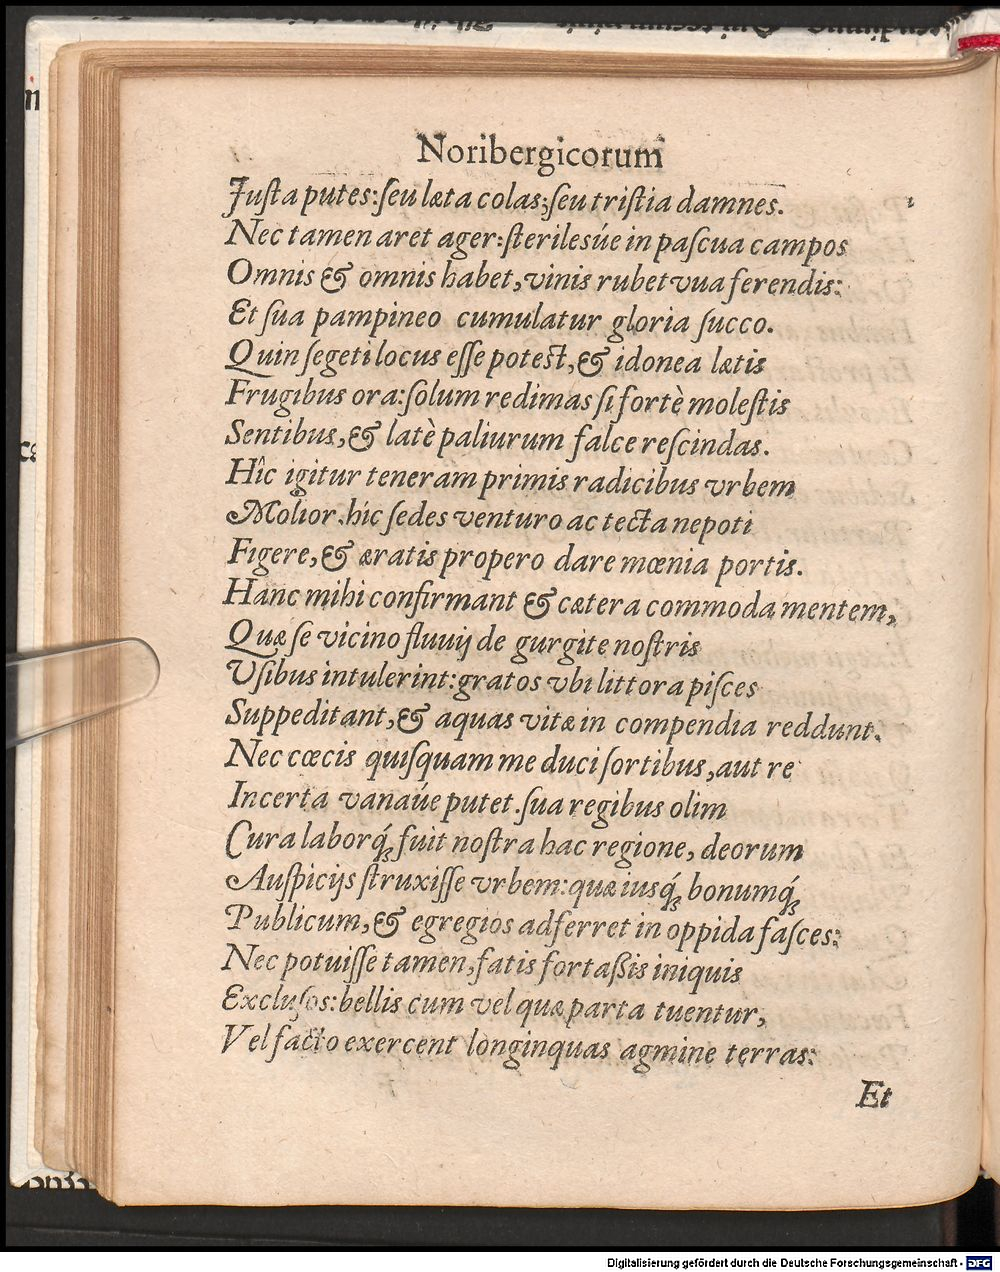 Noribergicorum
Iusta putes: ſeu læta colas; ſeu triſtia damnes.
Nec tamen aret ager: ſterilesúe in paſcua campos
Omnis & omnis habet, vinis rubet vua ferendis:
Et ſua pampineo cumulatur gloria ſucco.
Quin ſegeti locus eſſe poteſt, & idonea lætis
Frugibus ora: ſolum redimas ſi fortè moleſtis
Sentibus, & latè paliurum falce reſcindas.
Hîc igitur teneram primis radicibus vrbem
Molior. hic ſedes venturo ac tecta nepoti
Figere, & æratis propero dare mœnia portis.
Hanc mihi confirmant & cætera commoda mentem,
Quæ ſe vicino fluuij de gurgite noſtris
Vſibus intulerint: gratos vbi littora piſces
Suppeditant, & aquas vitæ in compendia reddunt.
Nec cœcis quiſquam me duci ſortibus, aut re
Incerta vanaúe putet. ſua regibus olim
Cura laborq́; fuit noſtra hac regione, deorum
Auſpicijs ſtruxiſſe vrbem: quæ iusq́; bonumq́;
Publicum, & egregios adferret in oppida faſces:
Nec potuiſſe tamen, fatis fortaßis iniquis
Excluſos: bellis cum vel quæ parta tuentur,
Vel facto exercent longinquas agmine terras:
Et
Digitalisierung gefördert durch die Deutsche Forschungsgemeinschaft - DFG